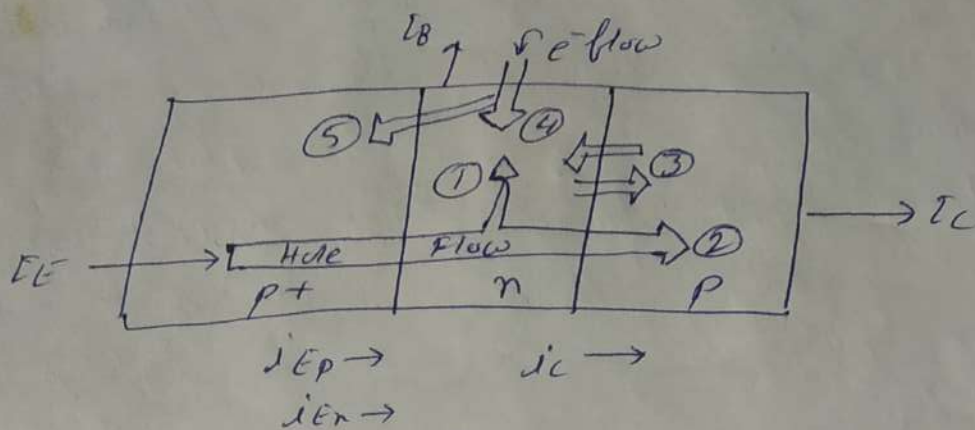 IB e⁻ flow
⑤ ④
① ③
IE Hole Flow ② IC
p+ n p
iEp → iC →
iEn →